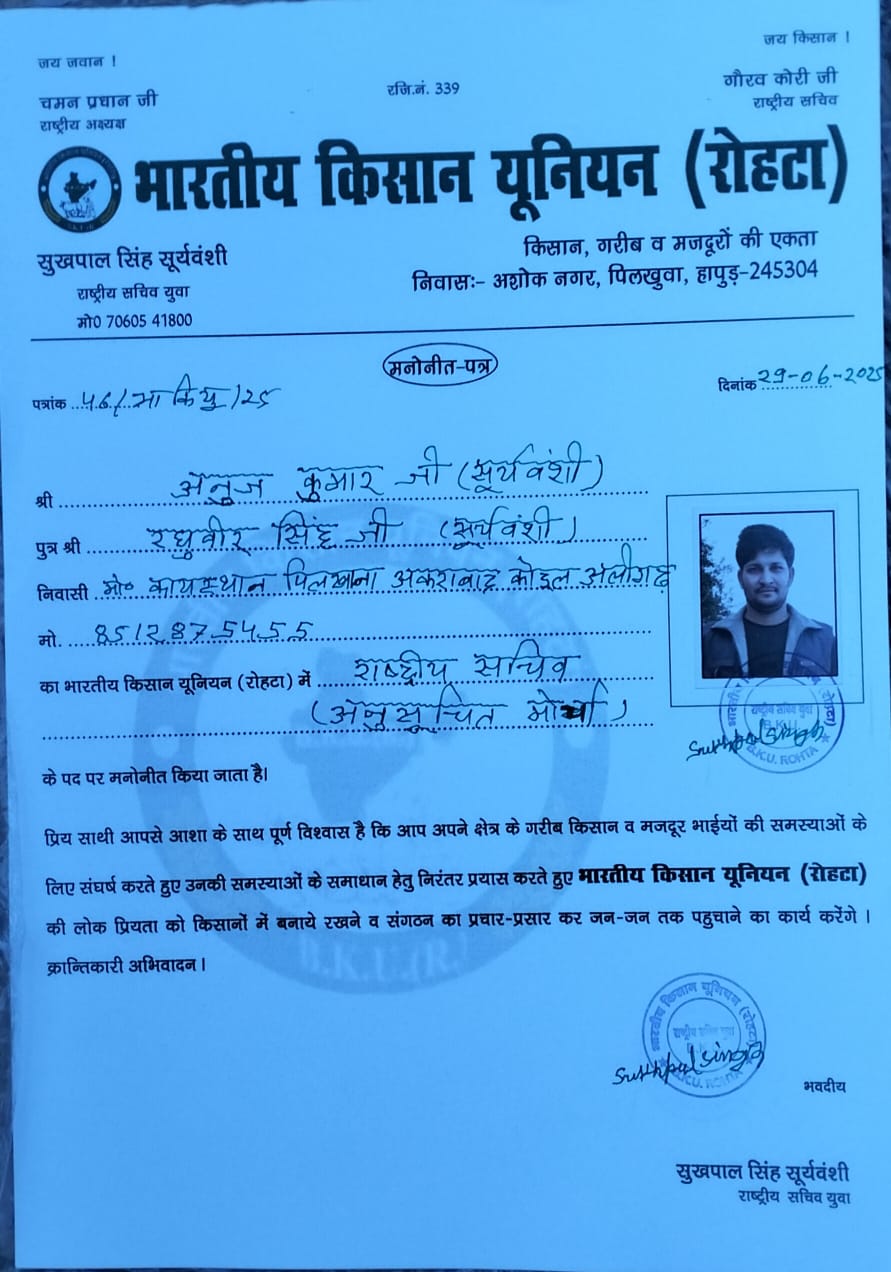 जय जवान !
जय किसान !
चमन प्रधान जी
राष्ट्रीय अध्यक्ष
रजि.नं. 339
गौरव कोरी जी
राष्ट्रीय सचिव
भारतीय किसान यूनियन (रोहटा)
सुखपाल सिंह सूर्यवंशी
राष्ट्रीय सचिव युवा
मो0 70605 41800
किसान, गरीब व मजदूरों की एकता
निवासः- अशोक नगर, पिलखुवा, हापुड़-245304
मनोनीत-पत्र
पत्रांक 46/भा कियु/25
दिनांक 29-06-2025
श्री अनुज कुमार जी (सूर्यवंशी)
पुत्र श्री रघुवीर सिंह जी (सूर्यवंशी)
निवासी मो० कायस्थान पिलखाना अकराबाद कोइल अलीगढ़
मो. 8512875455
का भारतीय किसान यूनियन (रोहटा) में राष्ट्रीय सचिव
(अनुसूचित मोर्चा)
भारतीय किसान यूनियन (रोहटा)
राष्ट्रीय सचिव युवा
B.K.U.
B.K.U. ROHTA
Sukhpal Singh
के पद पर मनोनीत किया जाता है।
प्रिय साथी आपसे आशा के साथ पूर्ण विश्वास है कि आप अपने क्षेत्र के गरीब किसान व मजदूर भाईयों की समस्याओं के
लिए संघर्ष करते हुए उनकी समस्याओं के समाधान हेतु निरंतर प्रयास करते हुए भारतीय किसान यूनियन (रोहटा)
की लोक प्रियता को किसानों में बनाये रखने व संगठन का प्रचार-प्रसार कर जन-जन तक पहुचाने का कार्य करेंगे ।
क्रान्तिकारी अभिवादन ।
B.K.U.(R.)
भारतीय किसान यूनियन (रोहटा)
राष्ट्रीय सचिव युवा
B.K.U. ROHTA
Sukhpal Singh
भवदीय
सुखपाल सिंह सूर्यवंशी
राष्ट्रीय सचिव युवा